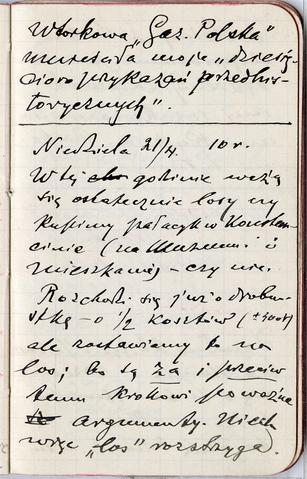 Wtorkowa „Gaz. Polska"
umieściła moje „dziesię-
cioro przykazań przedhis-
torycznych".
Niedziela 21/4. 10 r.
W tej godzinie ważą
się ostatecznie losy czy
kupimy pałacyk w Konstan-
cinie (na Muzeum i
mieszkanie) – czy nie.
Rozchodzi się już o drobno-
stkę – o ½ kosztów
ale zostawiamy to na
los; bo są za i przeciw
temu krokowi poważne
argumenty. Niech
więc „los" rozstrzyga.